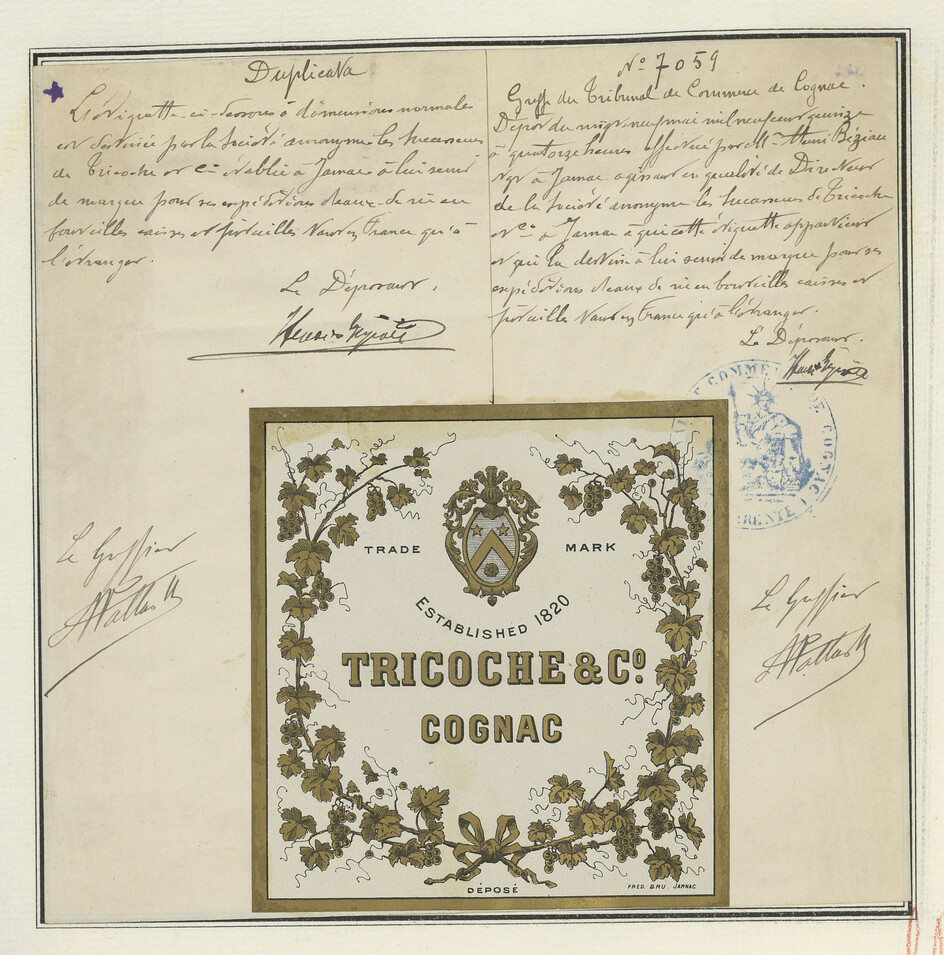 Duplicata
L'étiquette ci-dessous à dimensions normales
est destinée par la Société anonyme les Successeurs
de Tricoche et Cie établie à Jarnac à lui servir
de marque pour ses expéditions d'eaux de vie en
bouteilles caisses et futailles tant en France qu'à
l'étranger.
Le Déposant,
Le Greffier
No 7059
Greffe du Tribunal de Commerce de Cognac.
Dépôt du vingt neuf mai mil neuf cent quinze
à quatorze heures effectué par M. Henri
Ngt à Jarnac agissant en qualité de Directeur
de la Société anonyme les Successeurs de Tricoche
et Co à Jarnac à qui cette étiquette appartient
et qui la destine à lui servir de marque pour ses
expéditions d'eaux de vie en bouteilles caisses et
futailles tant en France qu'à l'étranger.
Le Déposant.
COMMERCE DE COGNAC
Le Greffier
TRADE MARK
ESTABLISHED 1820
TRICOCHE & Co.
COGNAC
DÉPOSÉ
FRED. BRU. JARNAC